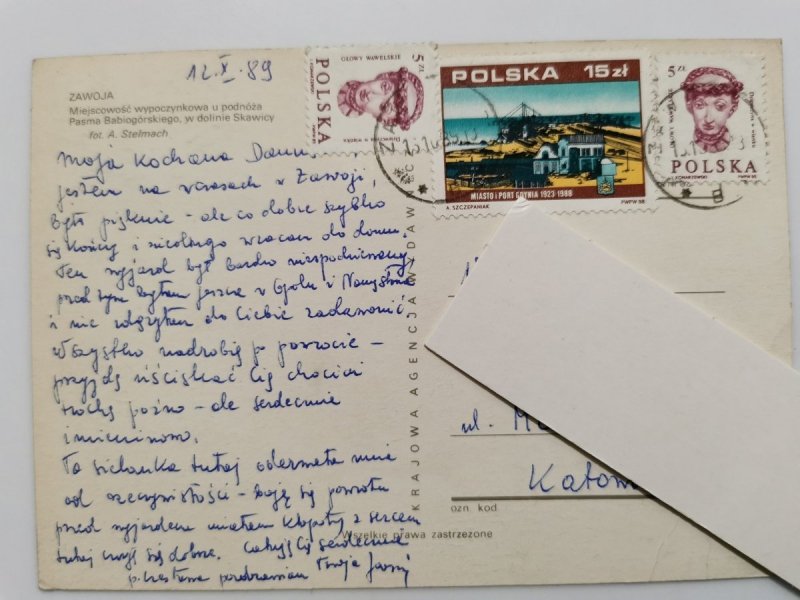 12.X.89
ZAWOJA
Miejscowość wypoczynkowa u podnóża
Pasma Babiogórskiego, w dolinie Skawicy
fot. A. Stelmach
Moja Kochana
jestem na wczasach w Zawoji,
było pięknie – ale co dobre szybko
się kończy i niedługo wracam do domu.
Ten wyjazd był bardzo niespodziewany
przed tym byłam jeszcze w Opolu i
i nie zdążyłam do Ciebie zadzwonić
Wszystko nadrobię po powrocie –
przyjdę uściskać Cię chociaż
trochę późno – ale serdecznie
imieninowo.
Ta sielanka tutaj oderwała mnie
od rzeczywistości – boję się powrotu
przed wyjazdem miałam kłopoty z sercem
tutaj czuję się dobrze. Całuję Cię serdecznie
p. Czesława pozdrawiam Twoja
KRAJOWA AGENCJA WYDAW
GŁOWY WAWELSKIE
5 zł
POLSKA
POLSKA 15 zł
MIASTO i PORT GDYNIA 1923-1988
A. SZCZEPANIAK
PWPW 88
5 zł
GŁOWY WAWELSKIE
POLSKA
ul.
ozn. kod
Wszelkie prawa zastrzeżone